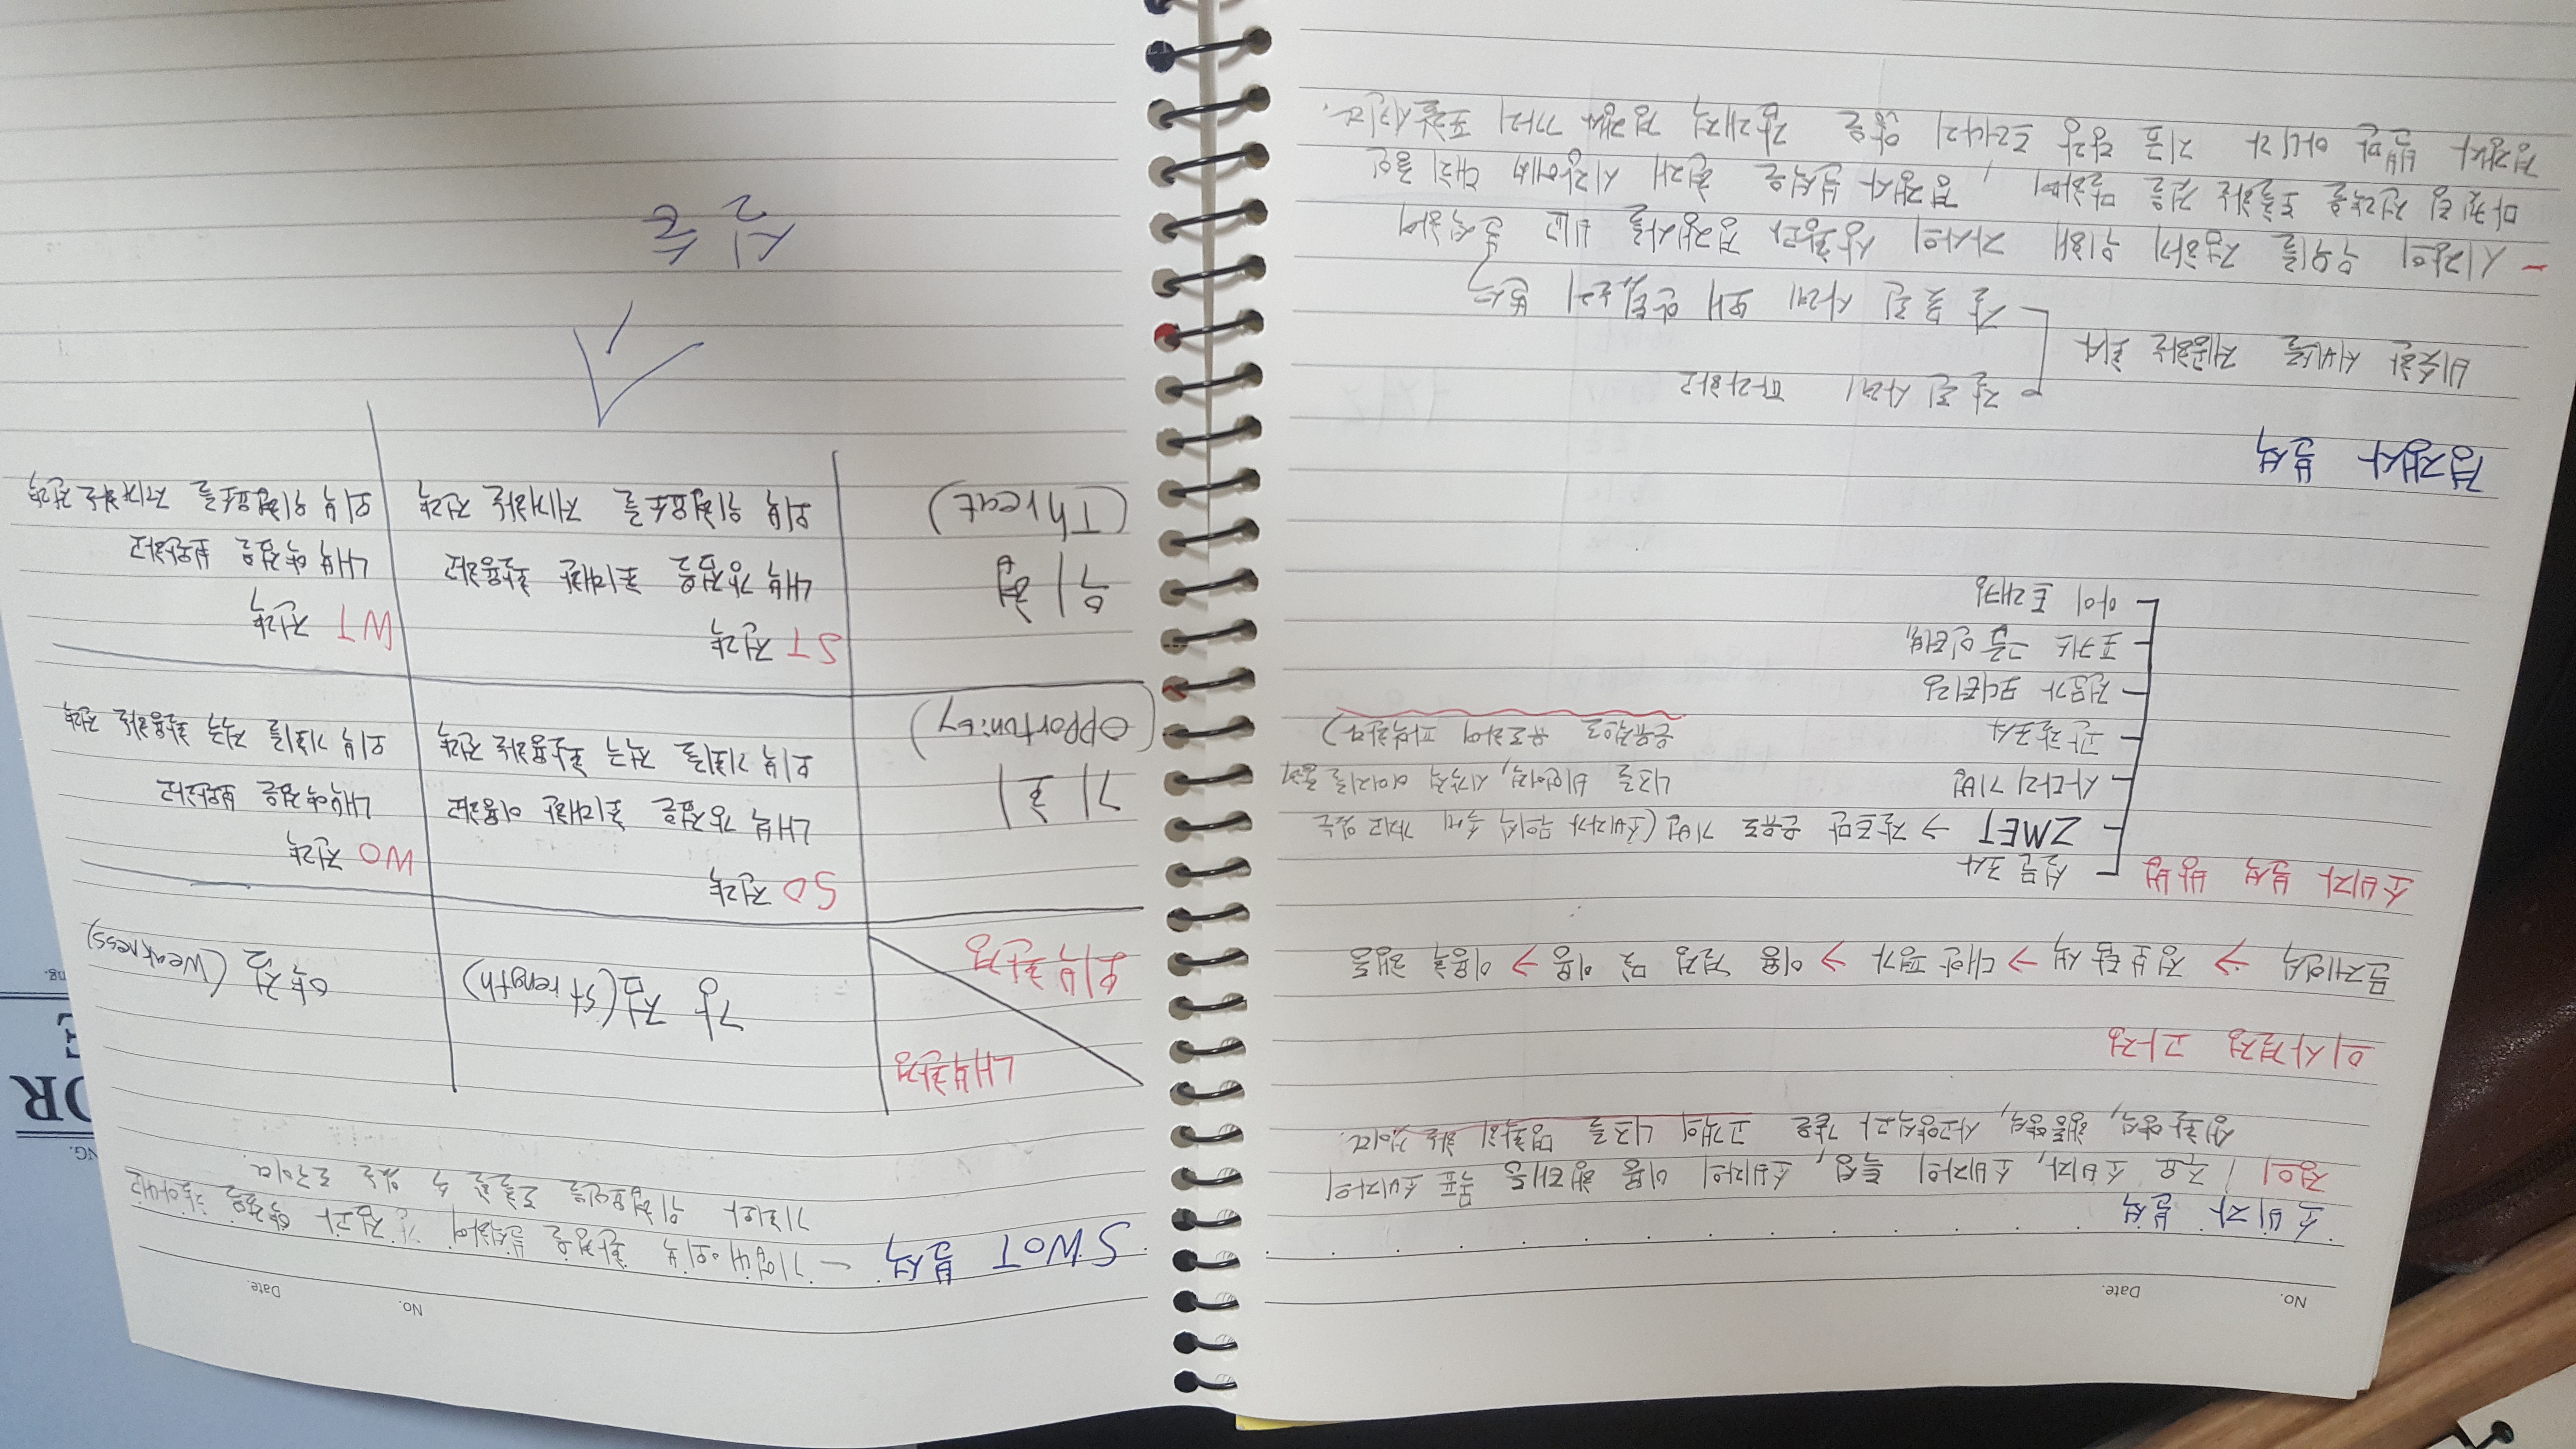 No.
Date.
소비자 분석
정의 / 주요 소비자, 소비자의 특성, 소비자의 이용 행태등 목표 소비자의
생활양식, 행동양식, 사고양식과 같은 고객의 니즈를 명확히 하는 것이다.
의사결정 과정
문제인식 → 정보탐색 → 대안 평가 → 이용 결정 및 이용 → 이용후 행동
소비자 분석 방법
설문조사
ZMET → 잘트만 은유도 기법 (소비자가 무의식 속에 가지고 있는
니즈를 비언어적, 시각적 이미지를 통해
은유적으로 유도하여 파악한다)
사다리 기법
관찰조사
전문가 모니터링
포커스 그룹 인터뷰
아이 트래킹
경쟁사 분석
비슷한 서비스를 제공하는 회사
잘 된 사례 따라하고
잘 못된 사례 왜 안됬는지 분석
- 시장의 우위를 점하기 위해 자사의 상황과 경쟁사를 비교 분석하여
마켓팅 전략을 도출하는 것을 말하며, 경쟁사 분석은 현재 시장에서 대치 중인
경쟁사 뿐만 아니라 지금 당장 드러나지 않은 잠재적 경쟁사 까지 포함시킨다.
No.
Date.
SWOT 분석 - 기업내·외부 환경을 분석하여 강점과 약점을 찾아내고
기회와 위협요인을 도출할 수 있는 도구이다.
내부환경
외부환경
강점(Strength)
약점(Weakness)
기회
(Opportunity)
SO 전략
내부 강점은 최대한 이용하고
외부 기회를 적극 활용하는 전략
WO 전략
내부약점은 보완하고
외부 기회를 적극 활용하는 전략
위협
(Threat)
ST 전략
내부 강점을 최대한 활용하고
외부 위협요소를 제거하는 전략
WT 전략
내부 약점을 보완하고
외부 위협요소를 제거하는 전략
실습
NG.
OR
E
ng.